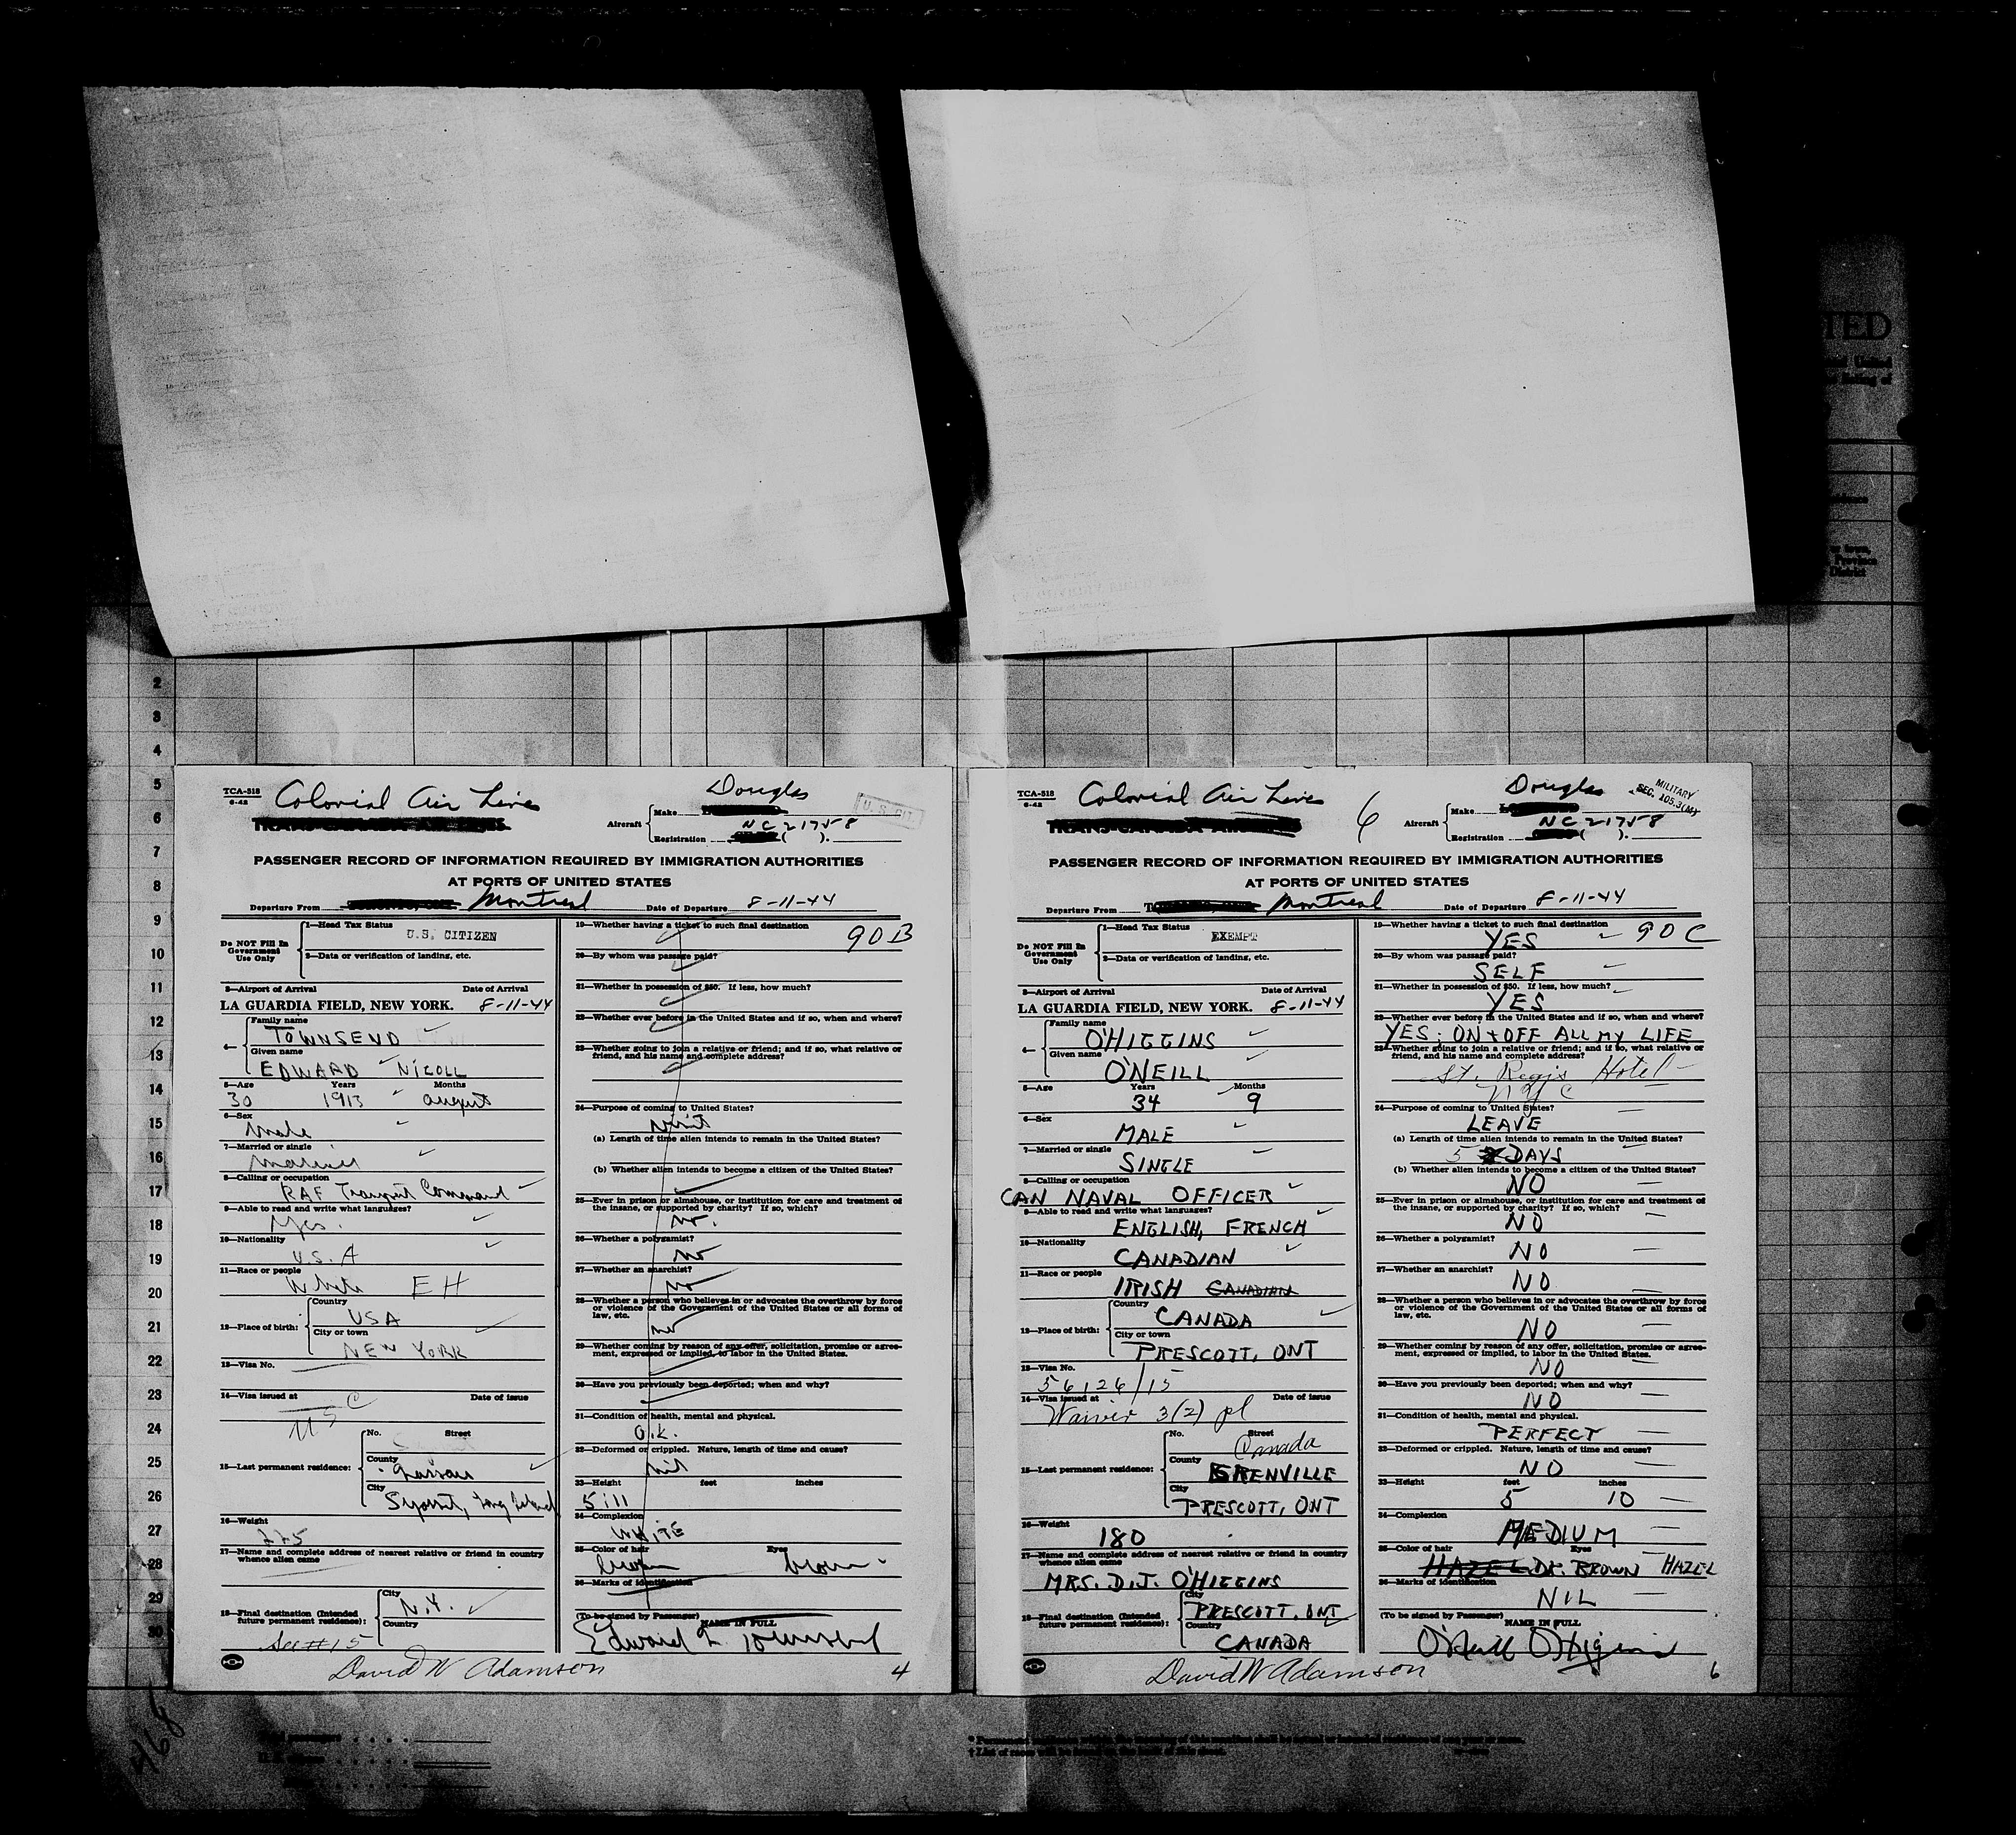 TED
2
3
4
5
6
7
8
9
10
11
12
13
14
15
16
17
18
19
20
21
22
23
24
25
26
27
28
29
30
TCA-518
6-42
Colonial Air Lines
TRANS-CANADA AIR LINES
Douglas
U.S. CIT.
Aircraft
Make
NC 21758
Registration ( ).
PASSENGER RECORD OF INFORMATION REQUIRED BY IMMIGRATION AUTHORITIES
AT PORTS OF UNITED STATES
Departure From Montreal Date of Departure 8-11-44
Do NOT Fill In
Government
Use Only
1—Head Tax Status
U.S. CITIZEN
2—Data or verification of landing, etc.
3—Airport of Arrival Date of Arrival
LA GUARDIA FIELD, NEW YORK. 8-11-44
4— Family name
TOWNSEND
Given name
EDWARD NICOLL
5—Age Years Months
30 1913 august
6—Sex
male
7—Married or single
married
8—Calling or occupation
RAF Transport Command
9—Able to read and write what languages?
Yes.
10—Nationality
U.S.A
11—Race or people
White EH
12—Place of birth:
Country
USA
City or town
NEW YORK
13—Visa No.
14—Visa issued at Date of issue
USC
15—Last permanent residence:
No. Street
County
Nassau
City
Syosset, Long Island
16—Weight
225
17—Name and complete address of nearest relative or friend in country
whence alien came
18—Final destination (Intended
future permanent residence):
City
N.Y.
Country
See #15
David W Adamson
19—Whether having a ticket to such final destination
90B
20—By whom was passage paid?
21—Whether in possession of $50. If less, how much?
22—Whether ever before in the United States and if so, when and where?
23—Whether going to join a relative or friend; and if so, what relative or
friend, and his name and complete address?
24—Purpose of coming to United States?
visit
(a) Length of time alien intends to remain in the United States?
(b) Whether alien intends to become a citizen of the United States?
25—Ever in prison or almshouse, or institution for care and treatment of
the insane, or supported by charity? If so, which?
no.
26—Whether a polygamist?
no
27—Whether an anarchist?
no
28—Whether a person who believes in or advocates the overthrow by force
or violence of the Government of the United States or all forms of
law, etc.
no
29—Whether coming by reason of any offer, solicitation, promise or agree-
ment, expressed or implied, to labor in the United States.
30—Have you previously been deported; when and why?
31—Condition of health, mental and physical.
O.K.
32—Deformed or crippled. Nature, length of time and cause?
nil
33—Height feet inches
5 11
34—Complexion
WHITE
35—Color of hair Eyes
brown brown
36—Marks of identification
(To be signed by Passenger)
NAME IN FULL
Edward N Townsend
4
TCA-518
6-42
Colonial Air Lines
TRANS-CANADA AIR LINES
6
Douglas
MILITARY
SEC. 105.3(M)
Aircraft
Make
NC 21758
Registration ( ).
PASSENGER RECORD OF INFORMATION REQUIRED BY IMMIGRATION AUTHORITIES
AT PORTS OF UNITED STATES
Departure From Montreal Date of Departure 8-11-44
Do NOT Fill In
Government
Use Only
1—Head Tax Status
EXEMPT
2—Data or verification of landing, etc.
3—Airport of Arrival Date of Arrival
LA GUARDIA FIELD, NEW YORK. 8-11-44
4— Family name
O'HIGGINS
Given name
O'NEILL
5—Age Years Months
34 9
6—Sex
MALE
7—Married or single
SINGLE
8—Calling or occupation
CAN NAVAL OFFICER
9—Able to read and write what languages?
ENGLISH, FRENCH
10—Nationality
CANADIAN
11—Race or people
IRISH CANADIAN
12—Place of birth:
Country
CANADA
City or town
PRESCOTT, ONT
13—Visa No.
56126/15
14—Visa issued at Date of issue
Waiver 3(2) pl
15—Last permanent residence:
No. Street
Canada
County
GRENVILLE
City
PRESCOTT, ONT
16—Weight
180
17—Name and complete address of nearest relative or friend in country
whence alien came
MRS. D.J. O'HIGGINS
18—Final destination (Intended
future permanent residence):
City
PRESCOTT, ONT
Country
CANADA
David W Adamson
19—Whether having a ticket to such final destination
YES 90C
20—By whom was passage paid?
SELF
21—Whether in possession of $50. If less, how much?
YES
22—Whether ever before in the United States and if so, when and where?
YES; ON + OFF ALL MY LIFE
23—Whether going to join a relative or friend; and if so, what relative or
friend, and his name and complete address?
St. Regis Hotel
NYC
24—Purpose of coming to United States?
LEAVE
(a) Length of time alien intends to remain in the United States?
5 DAYS
(b) Whether alien intends to become a citizen of the United States?
NO
25—Ever in prison or almshouse, or institution for care and treatment of
the insane, or supported by charity? If so, which?
NO
26—Whether a polygamist?
NO
27—Whether an anarchist?
NO
28—Whether a person who believes in or advocates the overthrow by force
or violence of the Government of the United States or all forms of
law, etc.
NO
29—Whether coming by reason of any offer, solicitation, promise or agree-
ment, expressed or implied, to labor in the United States.
NO
30—Have you previously been deported; when and why?
NO
31—Condition of health, mental and physical.
PERFECT
32—Deformed or crippled. Nature, length of time and cause?
NO
33—Height feet inches
5 10
34—Complexion
MEDIUM
35—Color of hair Eyes
HAZEL DK. BROWN HAZEL
36—Marks of identification
NIL
(To be signed by Passenger)
NAME IN FULL
O'Neill O'Higgins
6
468